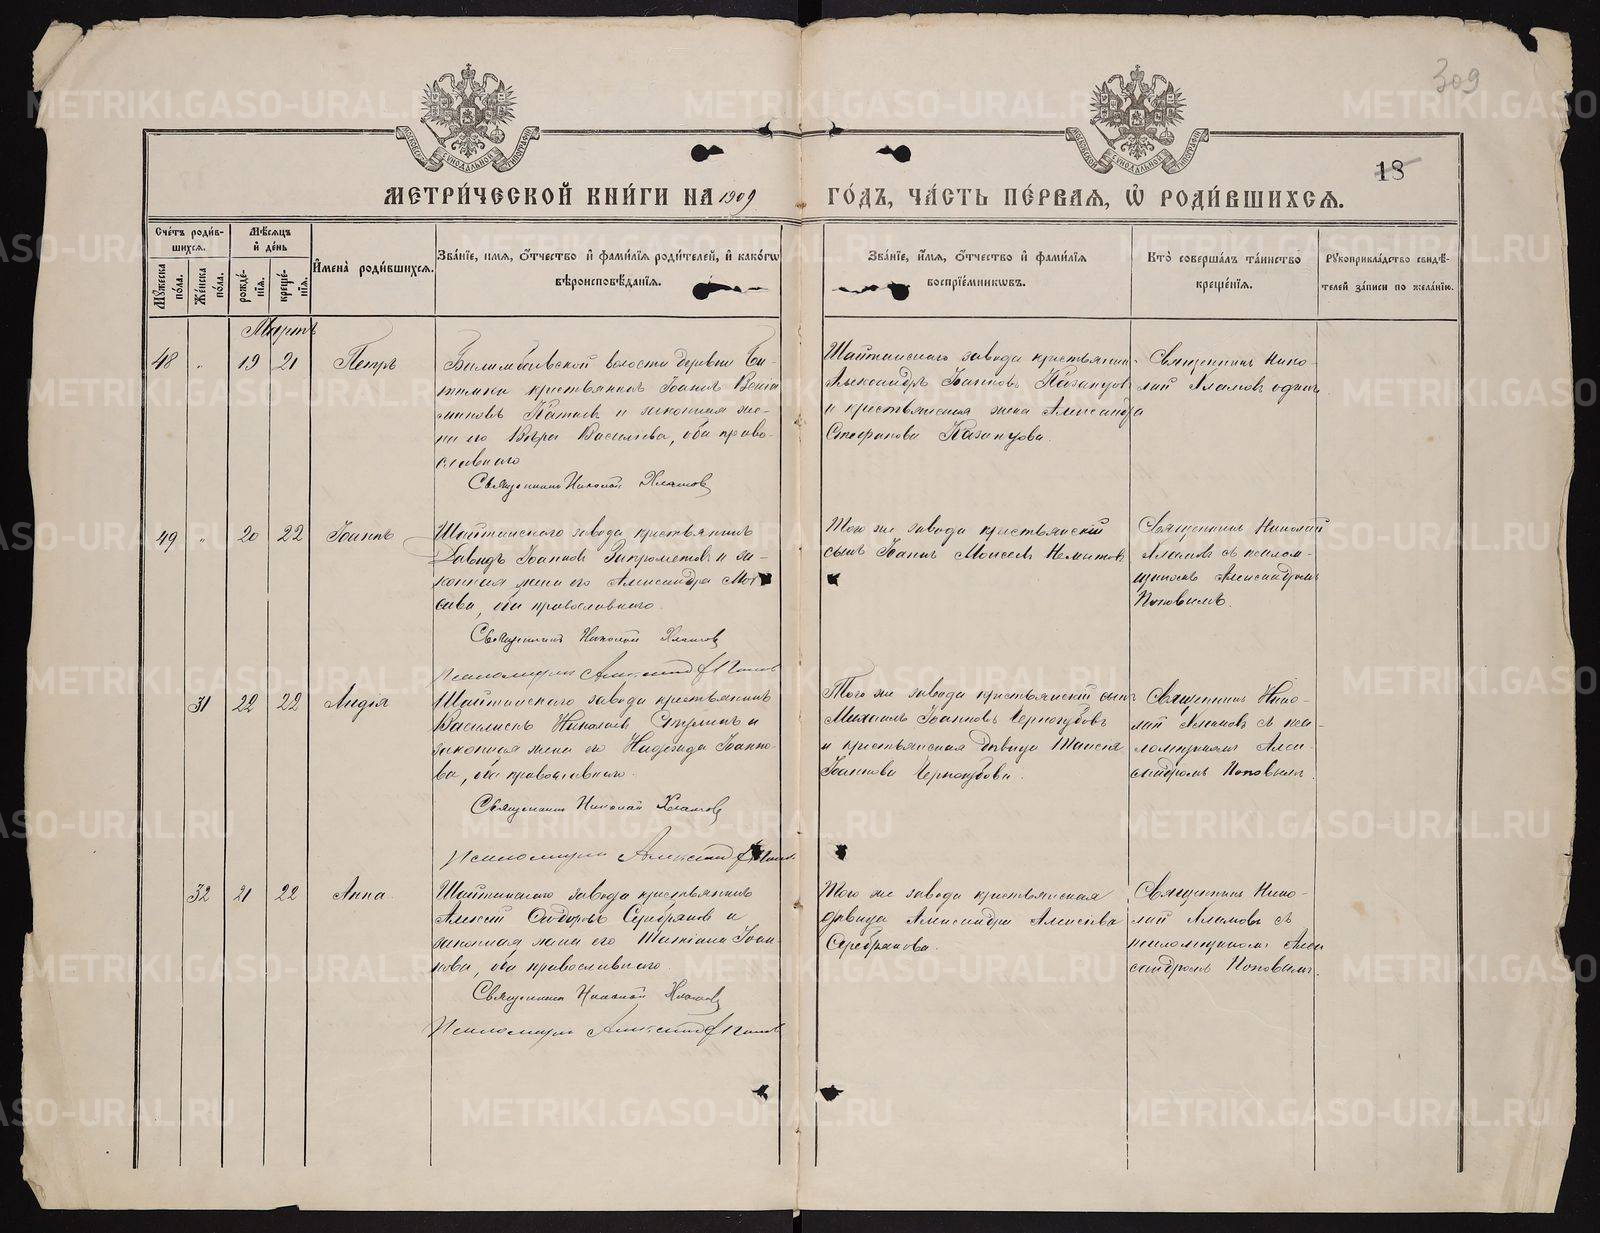 309
18
МЕТРИ́ЧЕСКОЙ КНИ́ГИ НА 1909 ГО́ДЪ, ЧА́СТЬ ПЕ́РВАЯ, Ѡ҆ РОДИ́ВШИХСѦ.
Сче́тъ роди́в-
шихсѧ.
Мꙋжеска по́ла.
Же́нска по́ла.
Мѣ́сѧцъ
и҆ де́нь
рожде́-
нїѧ.
креще́-
нїѧ.
И҆мена̀ роди́вшихсѧ.
Зва́нїе, имѧ, ѻ҆́тчество и҆ фами́лїѧ роди́телей, и҆ како́гѡ
вѣроисповѣ́данїѧ.
Зва́нїе, и҆́мѧ, ѻ҆́тчество и҆ фами́лїѧ
воспрїе́мникѡвъ.
Кто̀ соверша́лъ та́инство
креще́нїѧ.
Рꙋкоприкла́дство свидѣ́-
телей за́писи по жела́нїю.
Мартъ
48 " 19 21 Петръ
Билимбаевской волости деревни Би-
тимки крестьянинъ Іоаннъ Веніа
миновъ Катаевъ и законная же-
на его Вѣра Васильева, оба право-
славного
Священникъ Николай Хламовъ
Шайтанского завода крестьянинъ
Александръ Іоанновъ Казанцовъ
и крестьянская жена Александра
Стефанова Казанцова.
Священникъ Нико-
лай Хламовъ одинъ
49 " 20 22 Іоаннъ
Шайтанского завода крестьянинъ
Давидъ Іоанновъ и за-
конная жена его Александра Мои
сеева, оба православного.
Священникъ Николай Хламовъ
Псаломщикъ Александръ Поповъ
Того же завода крестьянскій
сынъ Іоаннъ Моисеевъ
Священникъ Николай
Хламовъ съ псалом-
щикомъ Александромъ
Поповымъ.
31 22 22 Лидія
Шайтанского завода крестьянинъ
Василискъ Николаевъ и
законная жена его Надежда Іоанно-
ва, оба православного.
Священникъ Николай Хламовъ
Псаломщикъ Александръ Поповъ
Того же завода крестьянскій сынъ
Михаилъ Іоанновъ Черногубовъ
и крестьянская дѣвица Таисія
Іоаннова Черногубова.
Священникъ Нико-
лай Хламовъ съ пса-
ломщикомъ Алек-
сандромъ Поповымъ
32 21 22 Анна
Шайтанского завода крестьянинъ
Алексій Сидоровъ Серебряковъ и
законная жена его Татіана Іоан-
нова, оба православного.
Священникъ Николай Хламовъ
Псаломщикъ Александръ Поповъ
Того же завода крестьянская
дѣвица Александра Алексѣева
Серебрякова.
Священникъ Нико-
лай Хламовъ съ
псаломщикомъ Алек
сандромъ Поповымъ.
METRIKI.GASO-URAL.RU